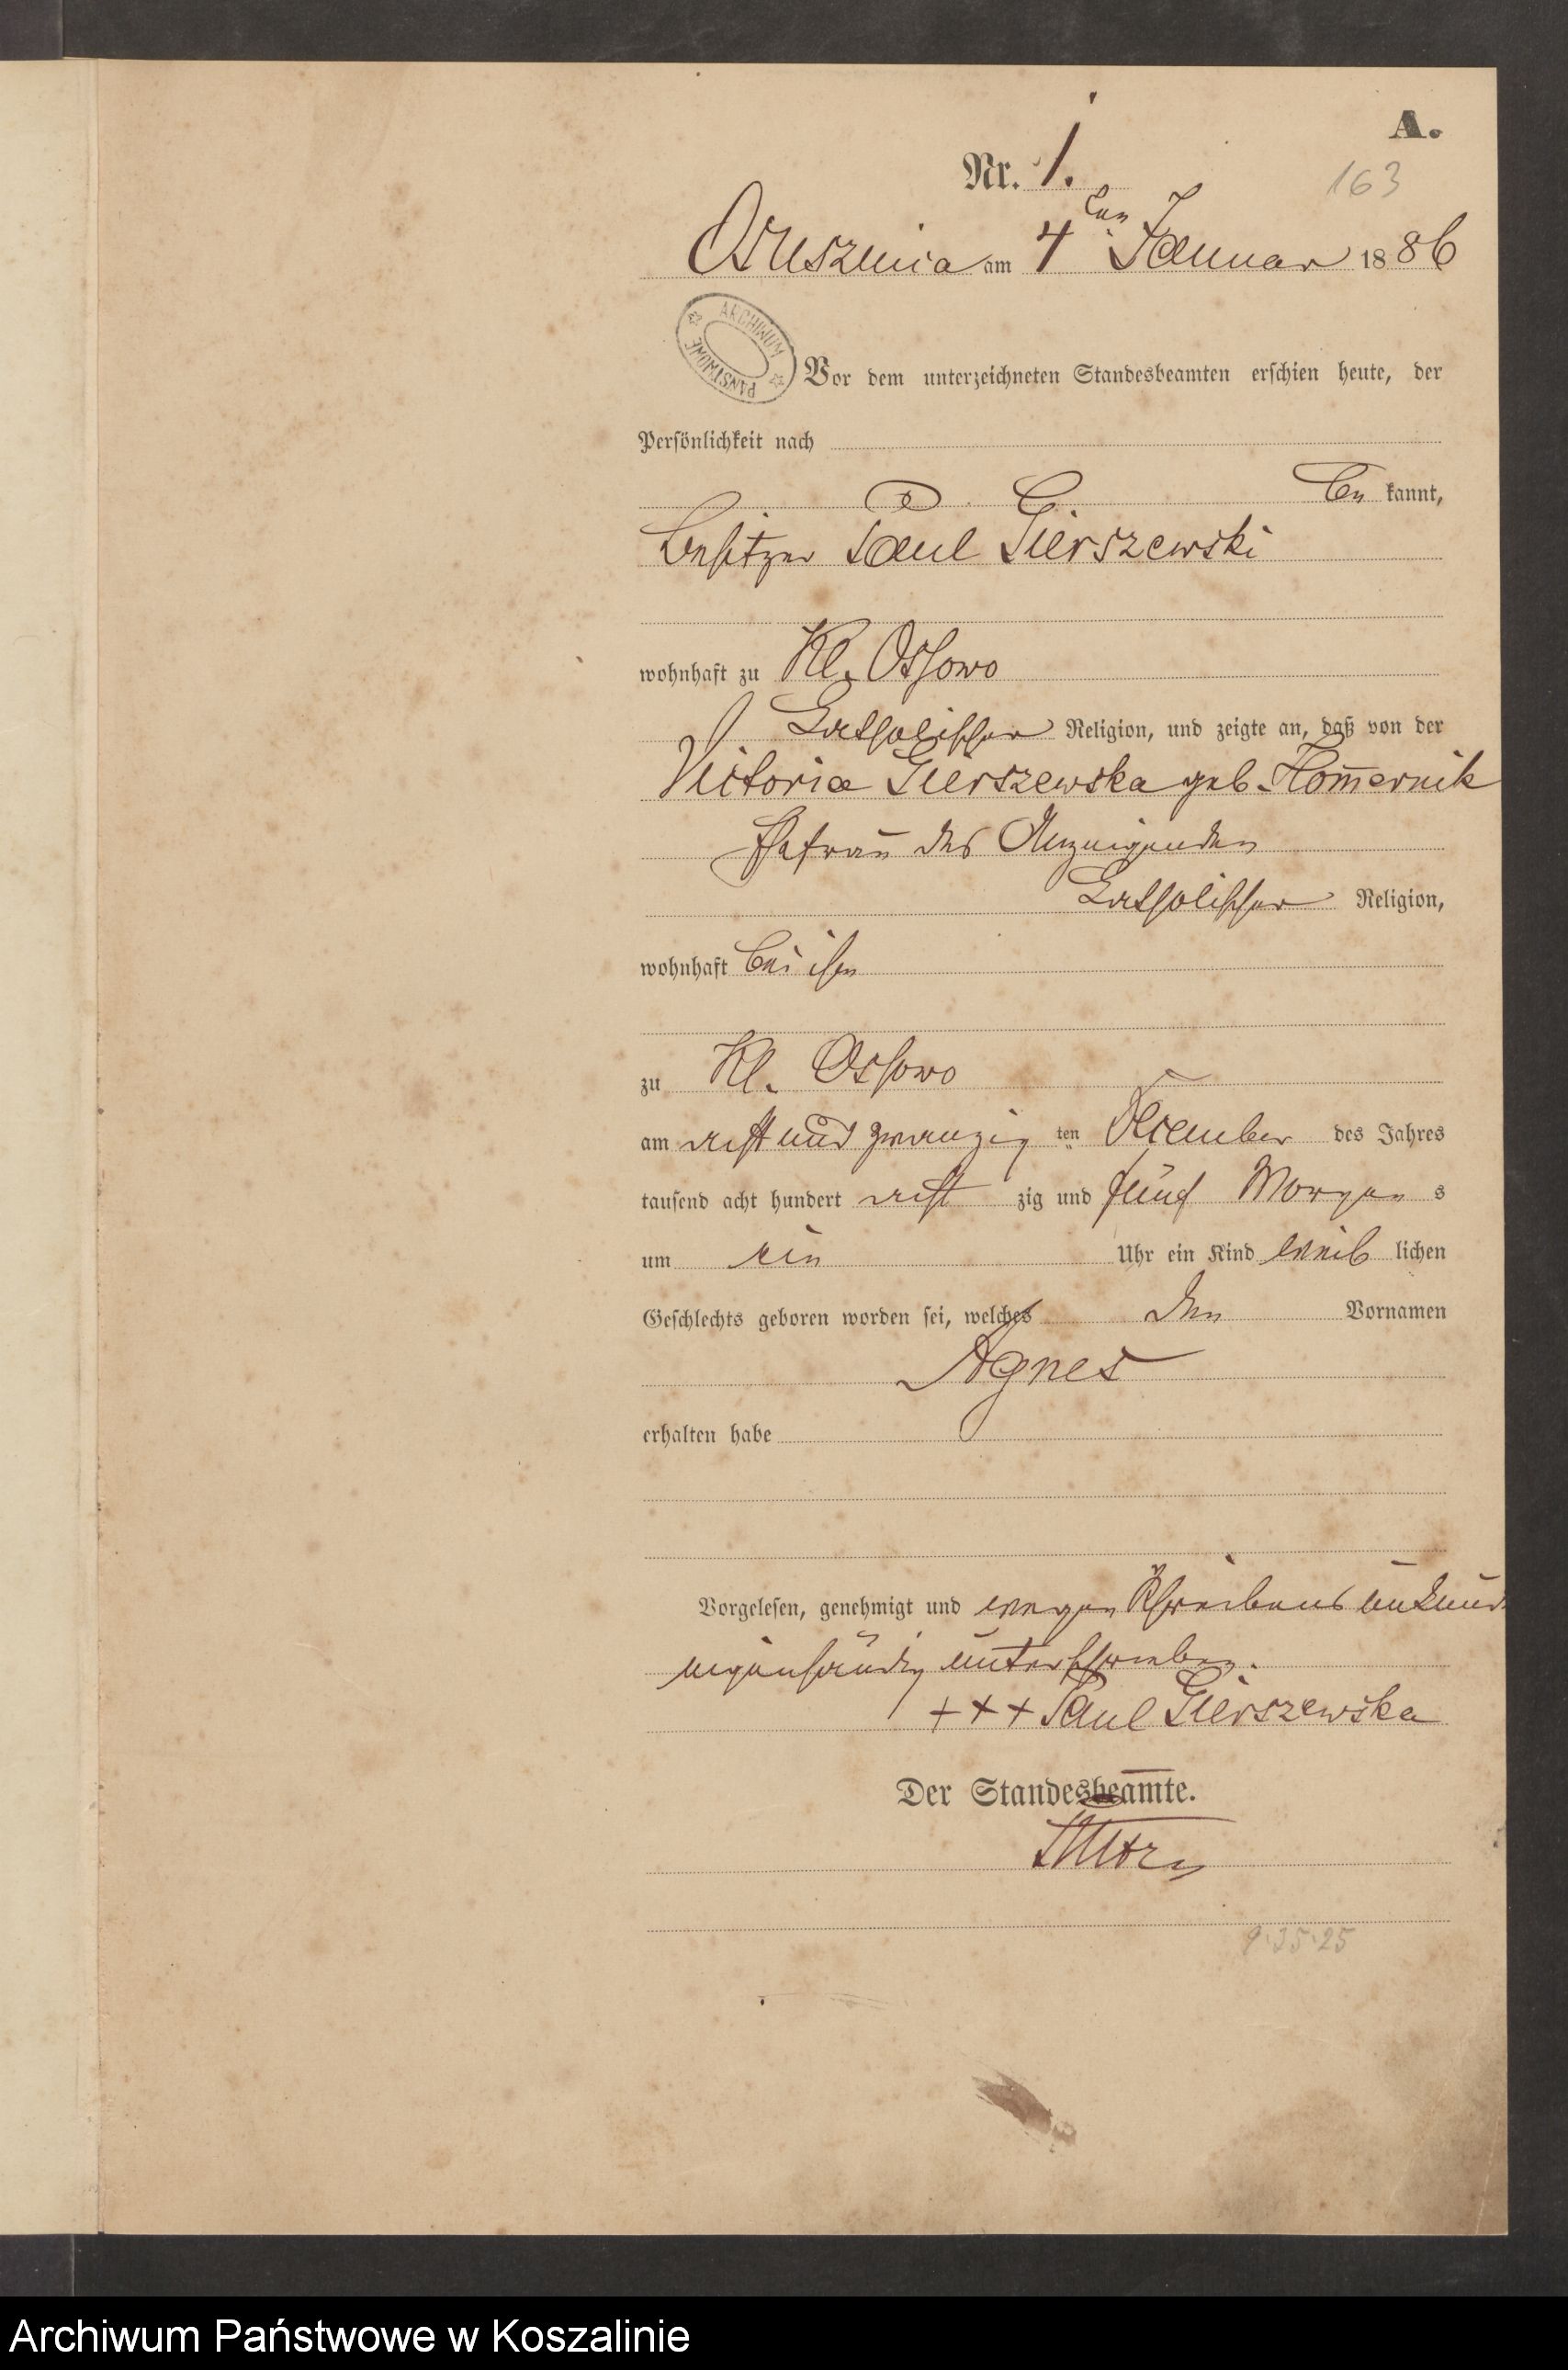 A.
Nr. 1.
163
Oszuszenica am 4ten Januar 1886
ARCHIWUM PAŃSTWOWE
Vor dem unterzeichneten Standesbeamten erschien heute, der
Persönlichkeit nach
be kannt,
Besitzer Paul Gierszewski
wohnhaft zu Kl. Ossowo
katholischer Religion, und zeigte an, daß von der
Victoria Gierszewska geb. Hom̄ernik
Ehefrau des Anzeigenden
katholischer Religion,
wohnhaft bei ihm
zu Kl. Ossowo
am acht und zwanzig ten Dezember des Jahres
tausend acht hundert acht zig und fünf Morgen s
um ein Uhr ein Kind weib lichen
Geschlechts geboren worden sei, welches den Vornamen
Agnes
erhalten habe
Vorgelesen, genehmigt und wegen Schreibens unkund
eigenhändig unterschrieben.
+++ Paul Gierszewska
Der Standesbeamte.
9.35.25
Archiwum Państwowe w Koszalinie